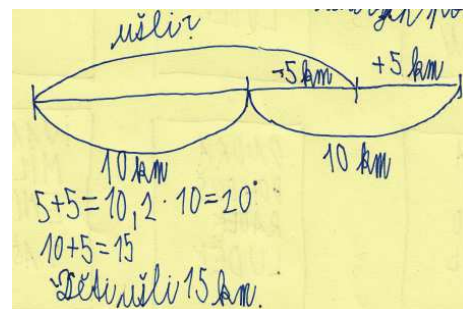 ušli?
-5 km +5 km
10 km 10 km
5+5=10, 2 · 10=20
10+5=15
Děti ušli 15 km.